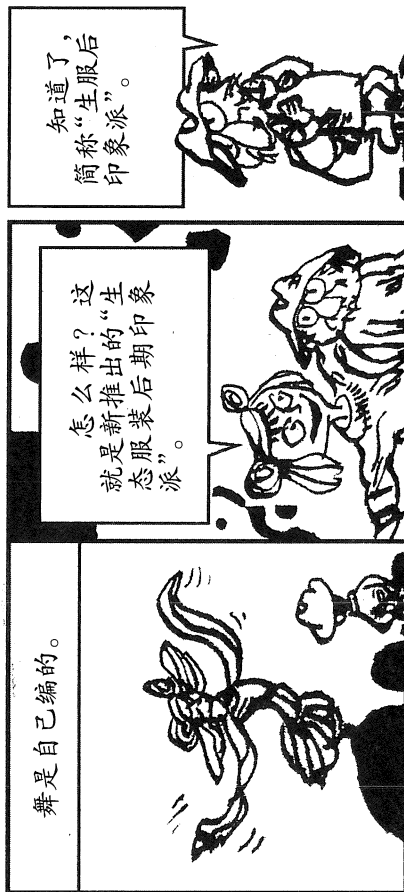 舞是自己编的。
怎么样？这
就是新推出的“生
态服装后期印象
派”。
知道了，
简称“生服后
印象派”。